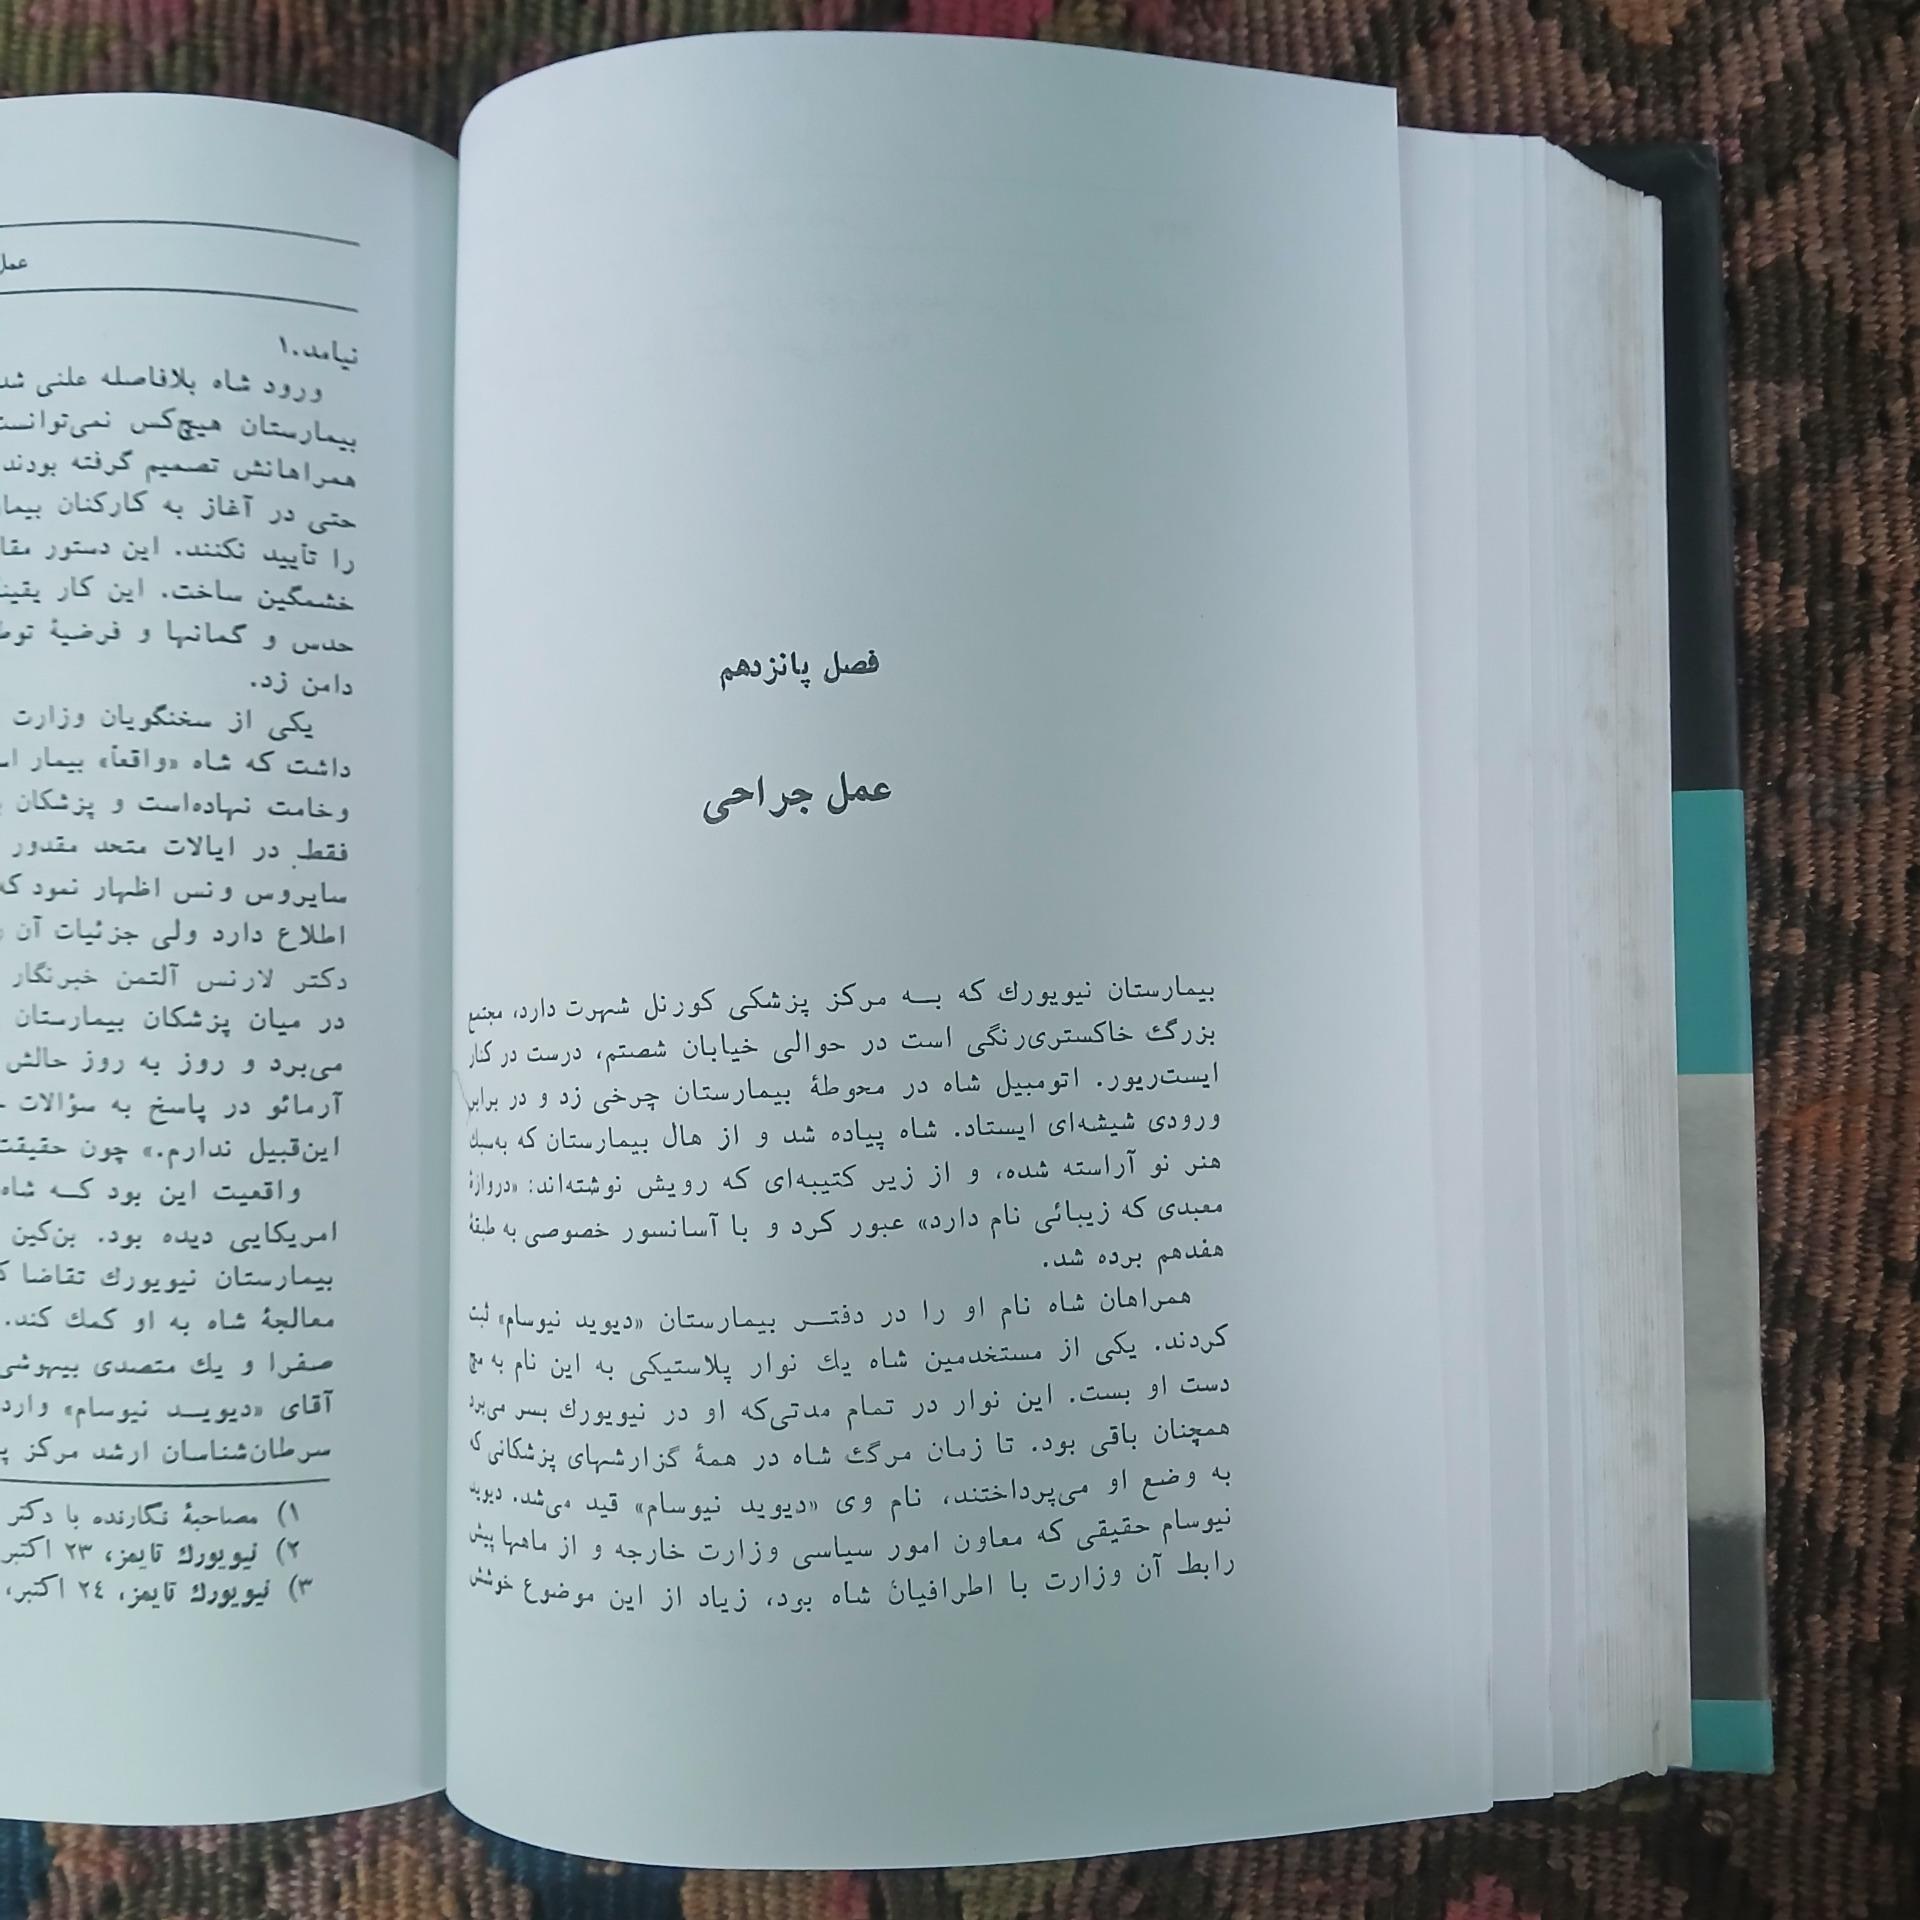 فصل پانزدهم
عمل جراحی
بیمارستان نیویورك که به مرکز پزشکی کورنل شهرت دارد، مجتمع
بزرگ خاکستری‌رنگی است در حوالی خیابان شصتم، درست در کنار
ایست‌ریور. اتومبیل شاه در محوطهٔ بیمارستان چرخی زد و در برابر
ورودی شیشه‌ای ایستاد. شاه پیاده شد و از هال بیمارستان که به‌سبك
هنر نو آراسته شده، و از زیر کتیبه‌ای که رویش نوشته‌اند: «دروازهٔ
معبدی که زیبائی نام دارد» عبور کرد و با آسانسور خصوصی به طبقهٔ
هفدهم برده شد.
همراهان شاه نام او را در دفتر بیمارستان «دیوید نیوسام» ثبت
کردند. یکی از مستخدمین شاه یك نوار پلاستیکی به این نام به مچ
دست او بست. این نوار در تمام مدتی‌که او در نیویورك بسر می‌برد
همچنان باقی بود. تا زمان مرگ شاه در همهٔ گزارشهای پزشکانی که
به وضع او می‌پرداختند، نام وی «دیوید نیوسام» قید می‌شد. دیوید
نیوسام حقیقی که معاون امور سیاسی وزارت خارجه و از ماهها پیش
رابط آن وزارت با اطرافیان شاه بود، زیاد از این موضوع خوشش
عمل
نیامد.۱
ورود شاه بلافاصله علنی شد
بیمارستان هیچ‌کس نمی‌توانست
همراهانش تصمیم گرفته بودند
حتی در آغاز به کارکنان
را تأیید نکنند. این دستور
خشمگین ساخت. این کار
حدس و گمانها و فرضیهٔ
دامن زد.
یکی از سخنگویان وزارت
داشت که شاه «واقعاً» بیمار
وخامت نهاده‌است و پزشکان
فقط در ایالات متحد مقدور
سایروس ونس اظهار نمود که
اطلاع دارد ولی جزئیات آن
دکتر لارنس آلتمن خبرنگار
در میان پزشکان بیمارستان
می‌برد و روز به روز حالش
آرمائو در پاسخ به سؤالات
این‌قبیل ندارم.» چون حقیقت
واقعیت این بود که شاه
امریکایی دیده بود. بن‌کین
بیمارستان نیویورك تقاضا
معالجهٔ شاه به او کمك کند.
صفرا و یك متصدی بیهوشی
آقای «دیوید نیوسام» وارد
سرطان‌شناسان ارشد مرکز
۱) مصاحبهٔ نگارنده با دکتر
۲) نیویورك تایمز، ۲۳ اکتبر
۳) نیویورك تایمز، ۲٤ اکتبر،